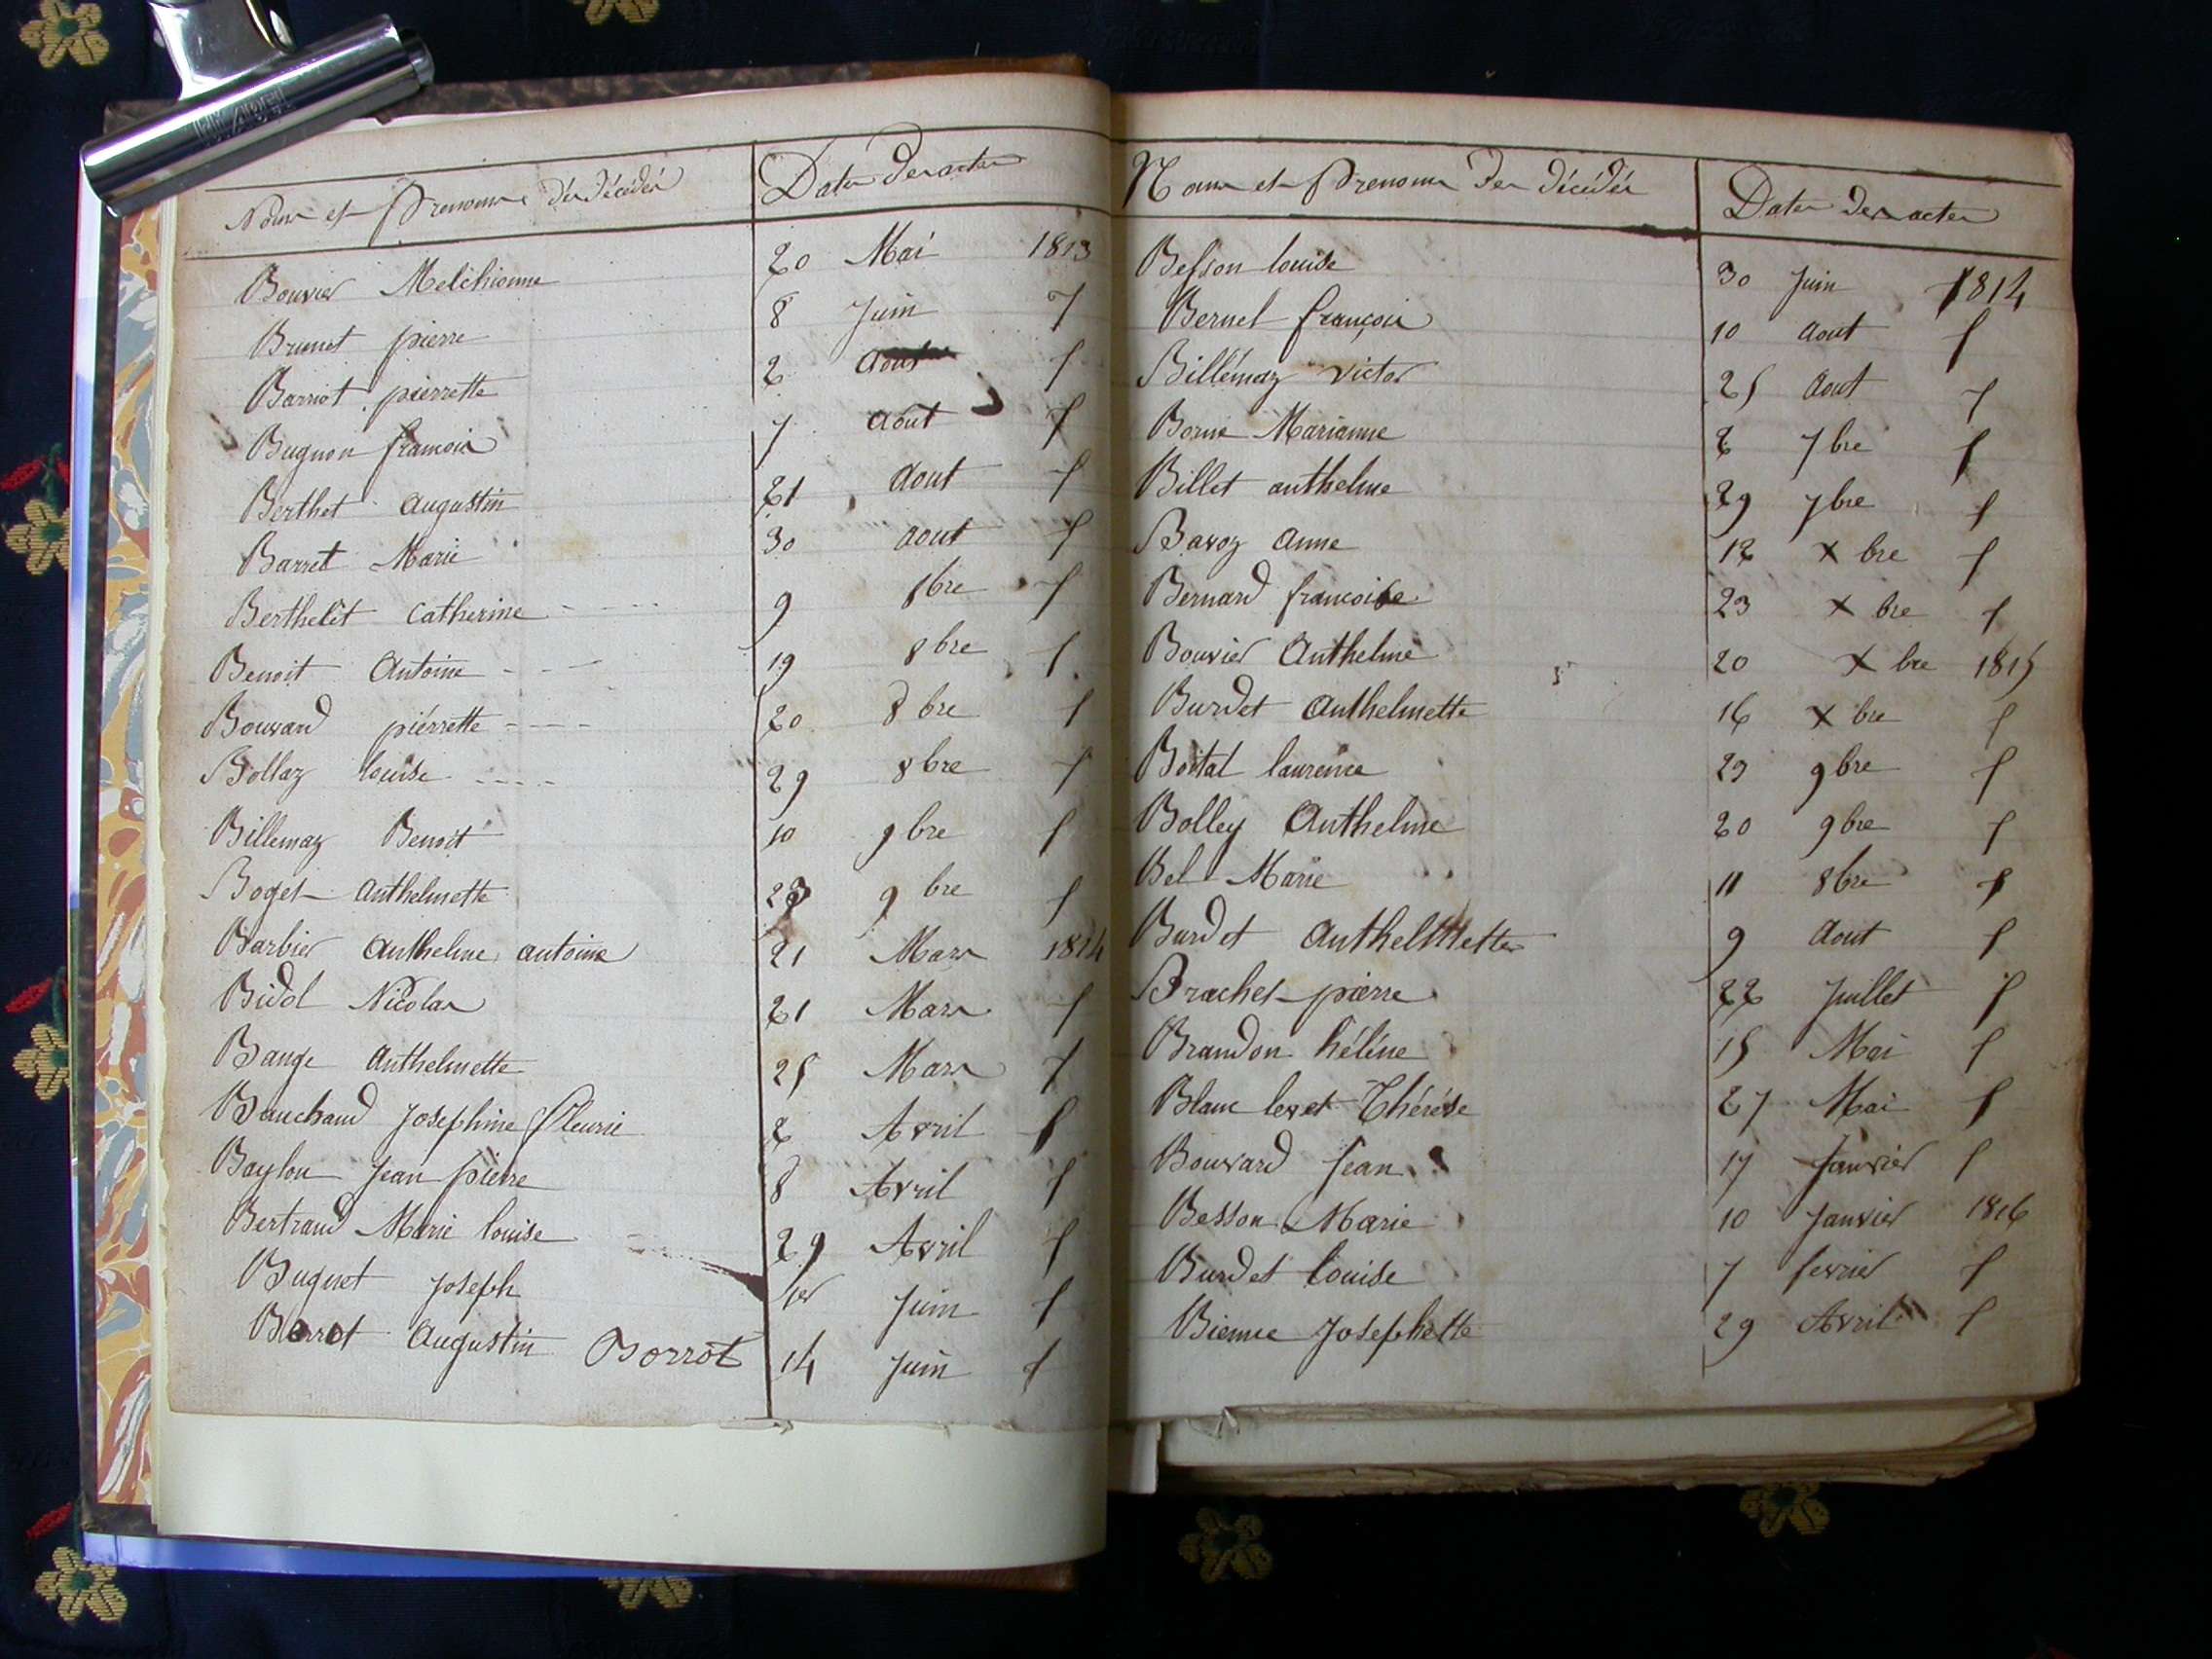 Noms et Prenoms des décédés Dates des actes
Bouvier Melchionne 20 Mai 1813
Brunet pierre 8 Juin f
Barriot pierrette 2 aout f
Bugnon francois 7 aout f
Berthet augustin 21 aout f
Barret Marie 30 aout f
Berthelet Catherine 9 8bre f
Benoit Antoine 19 8bre f
Bouvard piérrette 20 8bre f
Bollaz louise 29 8bre f
Billemaz Benoit 10 9bre f
Boget anthelmette 9bre f
Barbier anthelme antoine 21 Mars 1814
Bidol Nicolas 21 Mars f
Bange Anthelmette 25 Mars f
Bauchaud Josephine fleurie 2 Avril f
Baylon Jean pierre 8 Avril f
Bertrand Marie louise 29 Avril f
Buguet Joseph 1er Juin f
Borrot Augustin Borrot 14 Juin f
Noms et Prenoms des décédés Dates des actes
Besson louise 30 Juin 1814
Bernel françois 10 aout f
Billémaz victor 25 aout f
Borne Marianne 2 7bre f
Billet anthelme 29 7bre f
Bavoz anne 12 Xbre f
Bernard francoise 23 Xbre f
Bouvier Anthelme 20 Xbre 1815
Burdet Anthelmette 16 Xbre f
Boital laurence 23 9bre f
Bolley Anthelme 20 9bre f
Bel Marie 11 8bre f
Burdet Anthelmette 9 Aout f
Brachet pierre 22 Juillet f
Brandon héléne 15 Mai f
Blanc levet Thérése 27 Mai f
Bouvard Jean 17 Janvier f
Besson Marie 10 Janvier 1816
Burdet louise 7 fevrier f
Bienne Josephette 29 Avril f